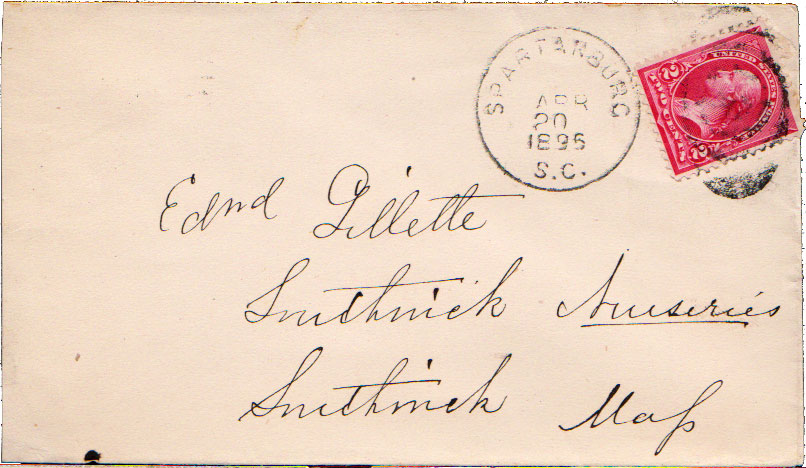 SPARTANBURG
APR
20
1896
S.C.
UNITED STATES POSTAGE
TWO CENTS
2 2
Edmd Gillette
Southwick Nurseries
Southwick Mass